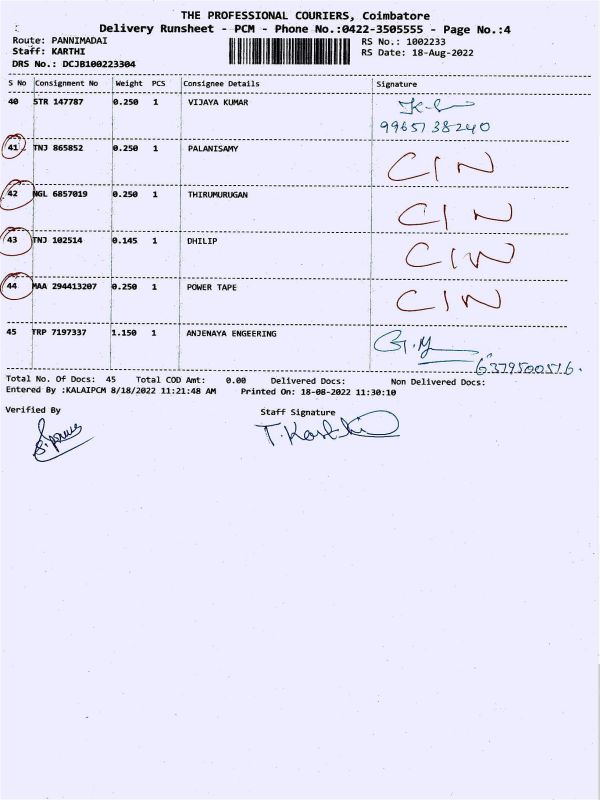 THE PROFESSIONAL COURIERS, Coimbatore
Delivery Runsheet - PCM - Phone No.:0422-3505555 - Page No.:4
Route: PANNIMADAI RS No.: 1002233
Staff: KARTHI RS Date: 18-Aug-2022
DRS No.: DCJB100223304
S No Consignment No Weight PCS Consignee Details Signature
40 STR 147787 0.250 1 VIJAYA KUMAR
9965738240
41 TNJ 865852 0.250 1 PALANISAMY CIN
42 NGL 6857019 0.250 1 THIRUMURUGAN CIN
43 TNJ 102514 0.145 1 DHILIP CIN
44 MAA 294413207 0.250 1 POWER TAPE CIN
45 TRP 7197337 1.150 1 ANJENAYA ENGEERING
6379500516.
Total No. Of Docs: 45 Total COD Amt: 0.00 Delivered Docs: Non Delivered Docs:
Entered By :KALAIPCM 8/18/2022 11:21:48 AM Printed On: 18-08-2022 11:30:10
Verified By Staff Signature
T. Karthi